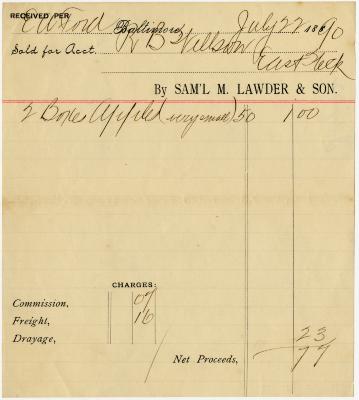 RECEIVED PER
Oxford Baltimore, July 22 1890
Sold for Acct. R B Willson
East
By SAM'L M. LAWDER & SON.
2 Boxes Apples (very small) 50 1 00
CHARGES:
Commission, 07
Freight, 16
Drayage,
23
Net Proceeds, 77